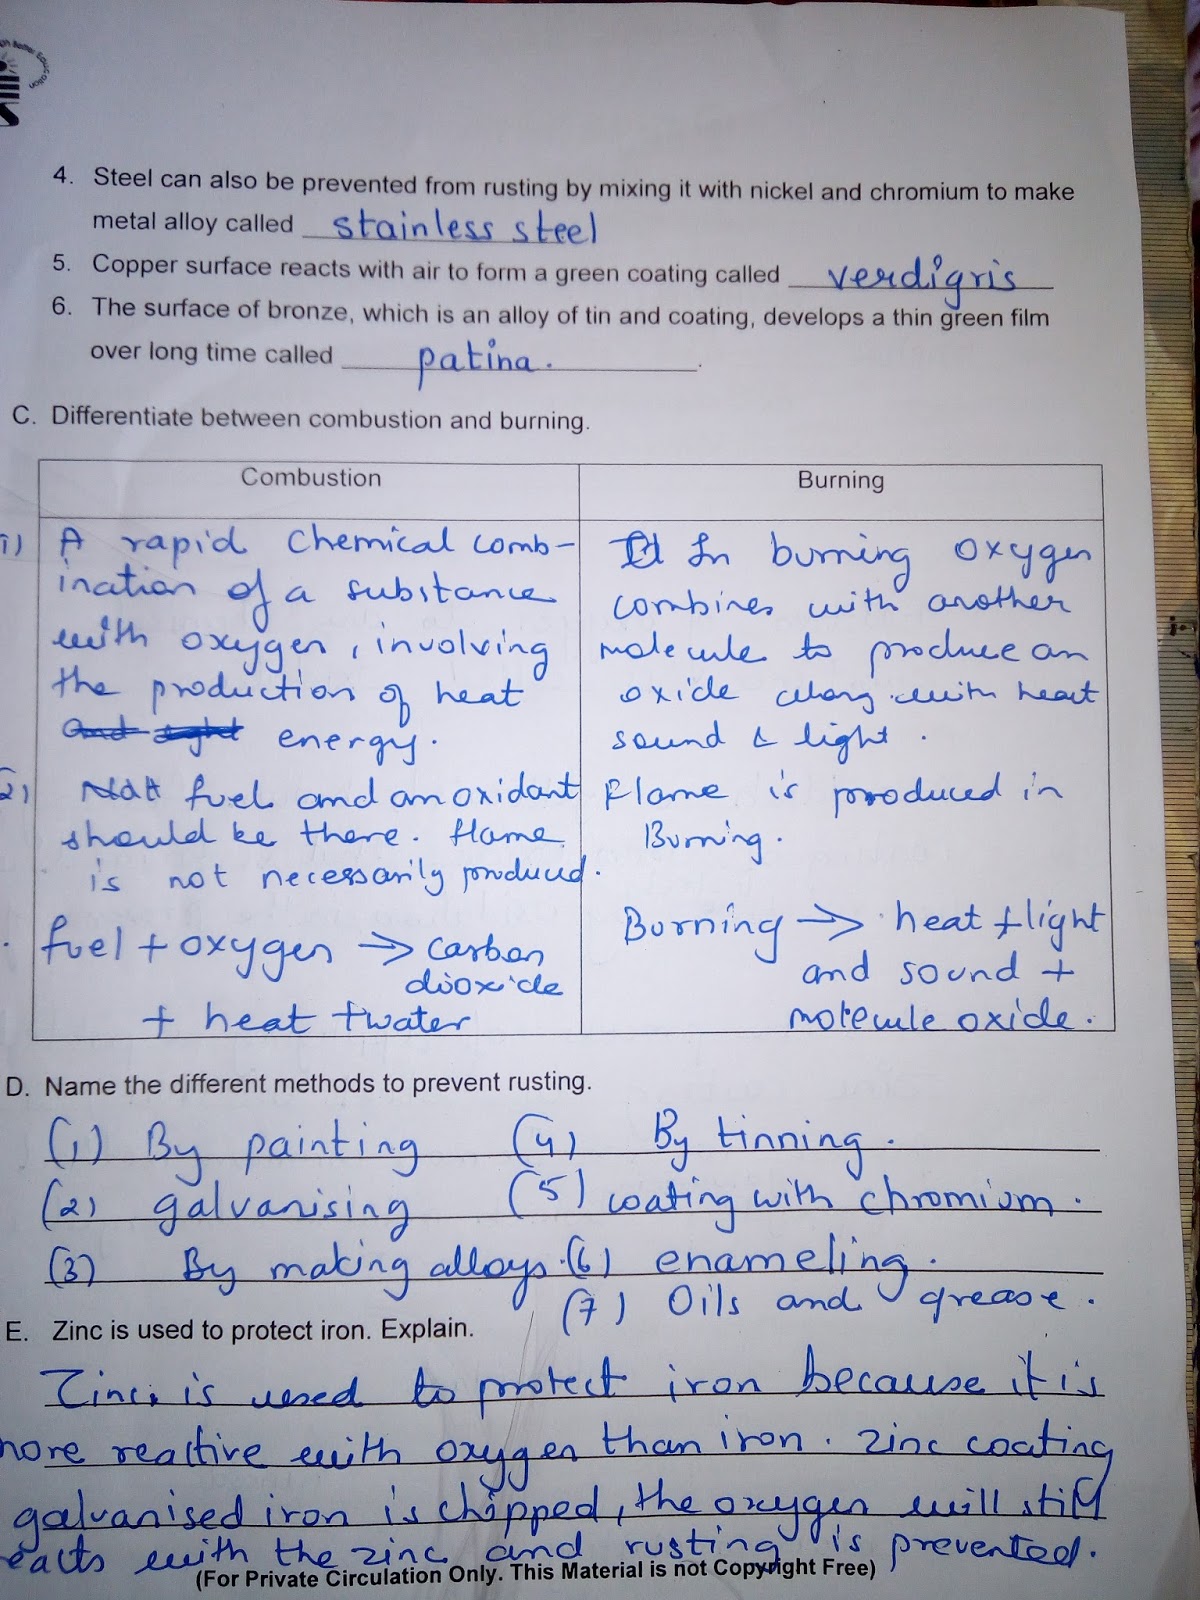 4. Steel can also be prevented from rusting by mixing it with nickel and chromium to make
metal alloy called stainless steel
5. Copper surface reacts with air to form a green coating called verdigris
6. The surface of bronze, which is an alloy of tin and coating, develops a thin green film
over long time called patina.
C. Differentiate between combustion and burning.
Combustion
1) A rapid chemical comb-
ination of a substance
with oxygen, involving
the production of heat
energy.
2) fuel and an oxidant
should be there. flame
is not necessarily produced.
fuel + oxygen → carbon
dioxide
+ heat + water
Burning
In burning oxygen
combines with another
molecule to produce an
oxide along with heat
sound & light.
Flame is produced in
Burning.
Burning → heat + light
and sound +
molecule oxide.
D. Name the different methods to prevent rusting.
(1) By painting (4) By tinning.
(2) galvanising (5) coating with chromium.
(3) By making alloys. (6) enameling.
(7) Oils and grease.
E. Zinc is used to protect iron. Explain.
Zinc is used to protect iron because it is
more reactive with oxygen than iron. zinc coating
galvanised iron is chipped, the oxygen will still
eacts with the zinc and rusting is prevented.
(For Private Circulation Only. This Material is not Copyright Free)